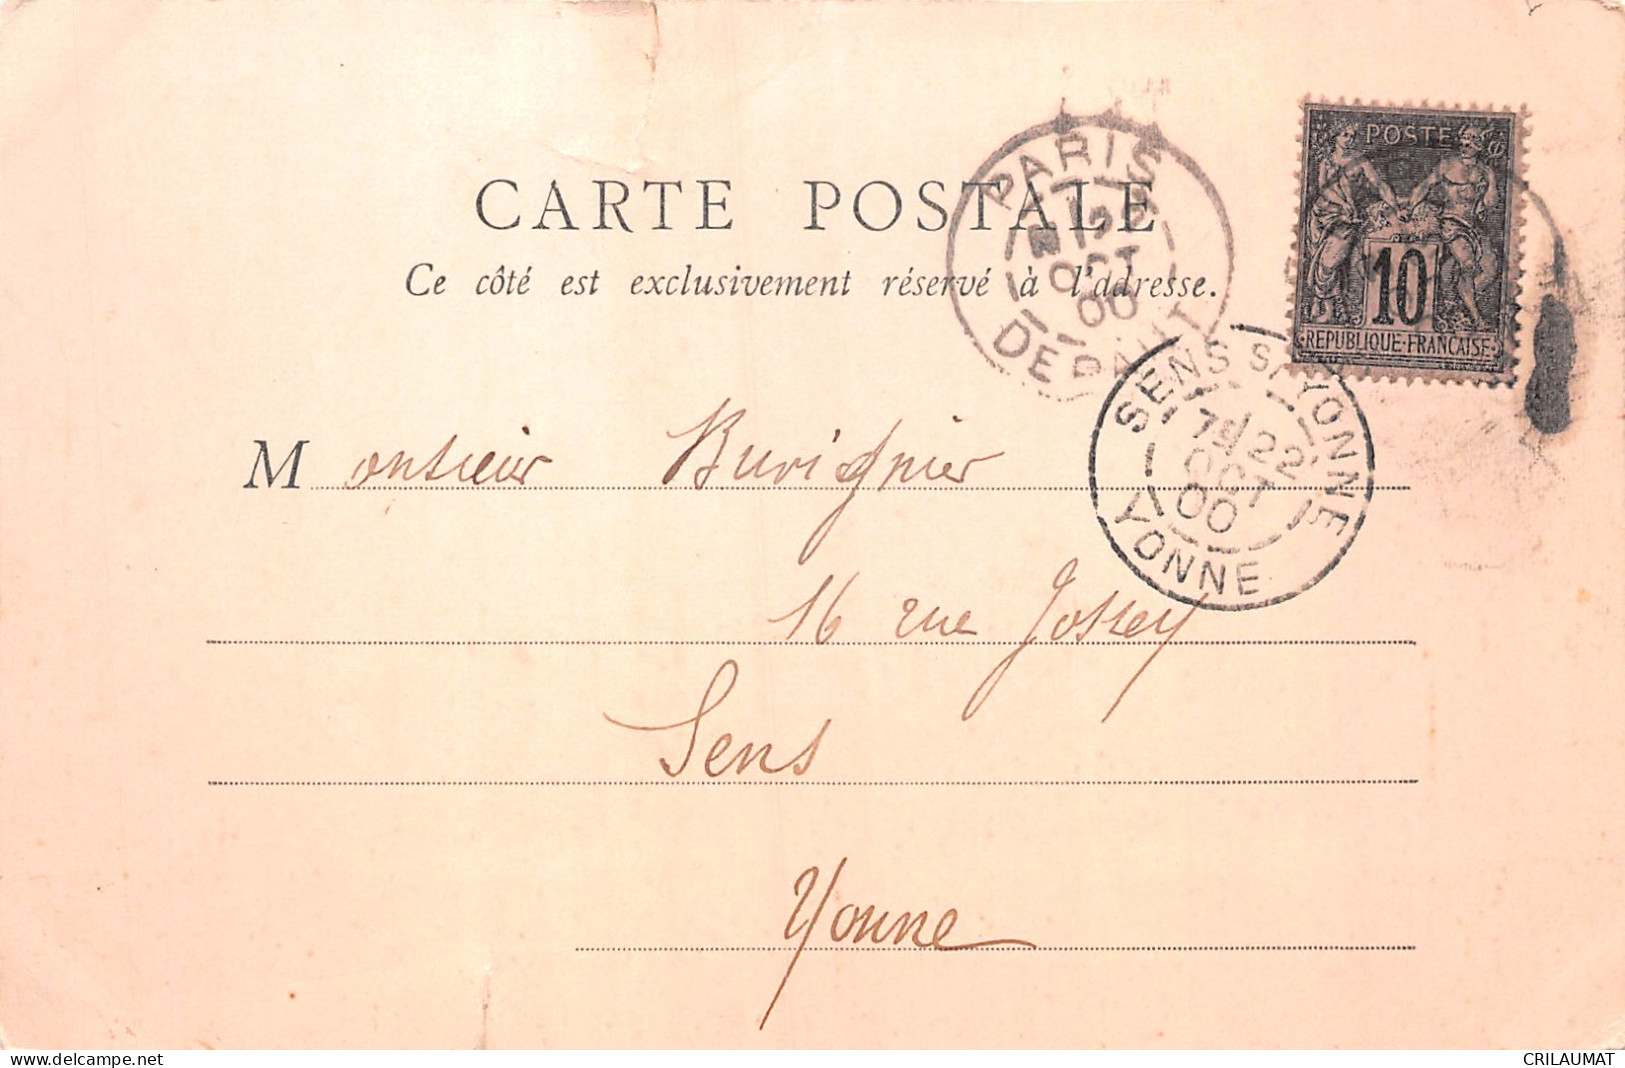 CARTE POSTALE
Ce côté est exclusivement réservé à l'adresse.
POSTE
10
REPUBLIQUE FRANÇAISE
PARIS
OCT
00
DEPART
SENS S/YONNE
7E 22
OCT
00
YONNE
Monsieur Buvignier
16 rue Jossey
Sens
Yonne
www.delcampe.net
CRILAUMAT